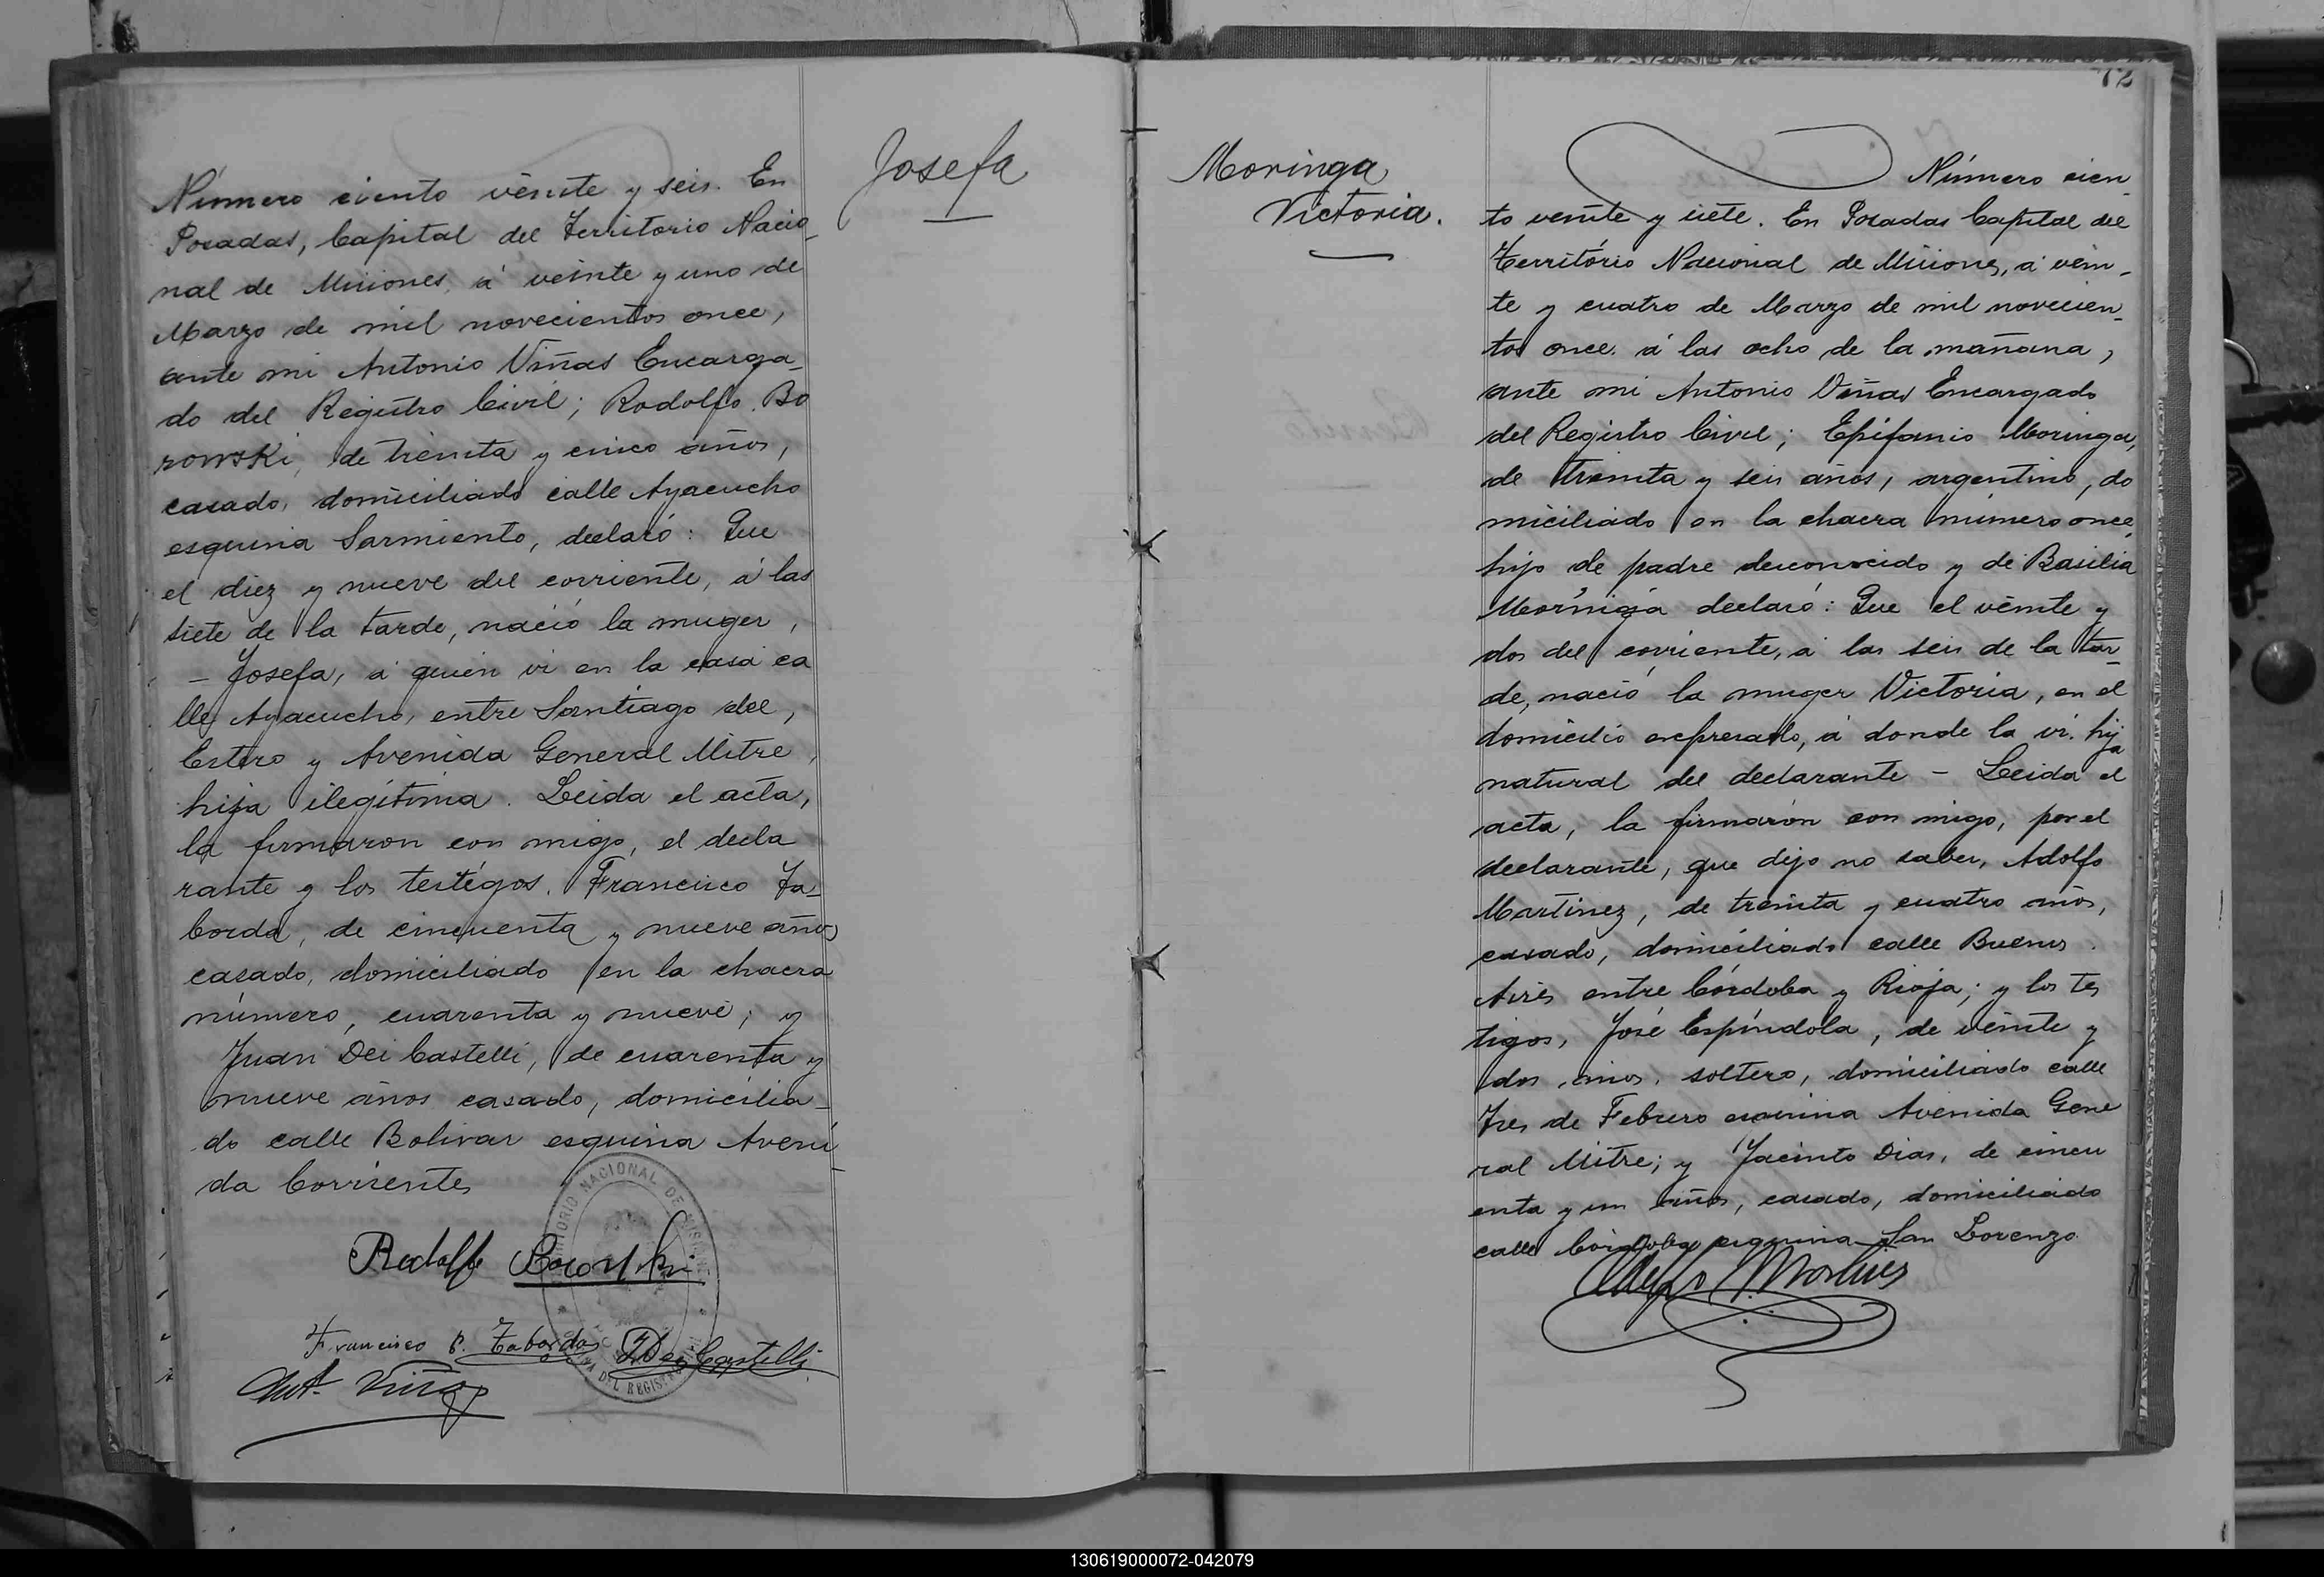 Número ciento veinte y seis. En
Posadas, Capital del Territorio Nacio-
nal de Misiones, á veinte y uno de
Marzo de mil novecientos once,
ante mi Antonio Viñas Encarga-
do del Registro Civil; Rodolfo Bo
rowski, de treinta y cinco años,
casado, domiciliado calle Ayacucho
esquina Sarmiento, declaró: Que
el diez y nueve del corriente, á las
siete de la tarde, nació la muger,
- Josefa, á quien vi en la casa ca
lle Ayacucho, entre Santiago del,
Estero y Avenida General Mitre,
hija ilegítima. Leida el acta,
la firmaron con migo, el decla
rante y los testigos. Francisco Ta-
borda, de cincuenta y nueve años
casado, domiciliado en la chacra
número, cuarenta y nueve; y
Juan Dei Castelli, de cuarenta y
nueve años casado, domicilia-
do calle Bolivar esquina Aveni-
da Corrientes
Rodolfo Borowski
Francisco P. Taborda J Dei Castelli
Ant. Viñas
TERRITORIO NACIONAL DE MISIONES
DEL REGISTRO
Josefa
Moringa
Victoria.
72
Número cien-
to veinte y siete. En Posadas Capital del
Território Nacional de Misiones, á vein-
te y cuatro de Marzo de mil novecien-
tos once. á las ocho de la mañana,
ante mi Antonio Viñas Encargado
del Registro Civil; Epifanio Moringa,
de treinta y seis años, argentino, do
miciliado en la chacra número once,
hijo de padre desconocido y de Basilia
Moringa declaró: Que el veinte y
dos del corriente, á las seis de la tar-
de, nació la muger Victoria, en el
domicilio expresado, á donde la vi. hija
natural del declarante - Leida el
acta, la firmarón con migo, por el
declarante, que dijo no saber, Adolfo
Martinez, de treinta y cuatro años,
casado, domiciliado calle Buenos
Aires entre Córdoba y Rioja; y los tes
tigos, José Espíndola, de veinte y
dos años, soltero, domiciliado calle
Tres de Febrero esquina Avenida Gene
ral Mitre; y Jacinto Dias, de cincu
enta y un años, casado, domiciliado
calle Córdoba esquina San Lorenzo
130619000072-042079